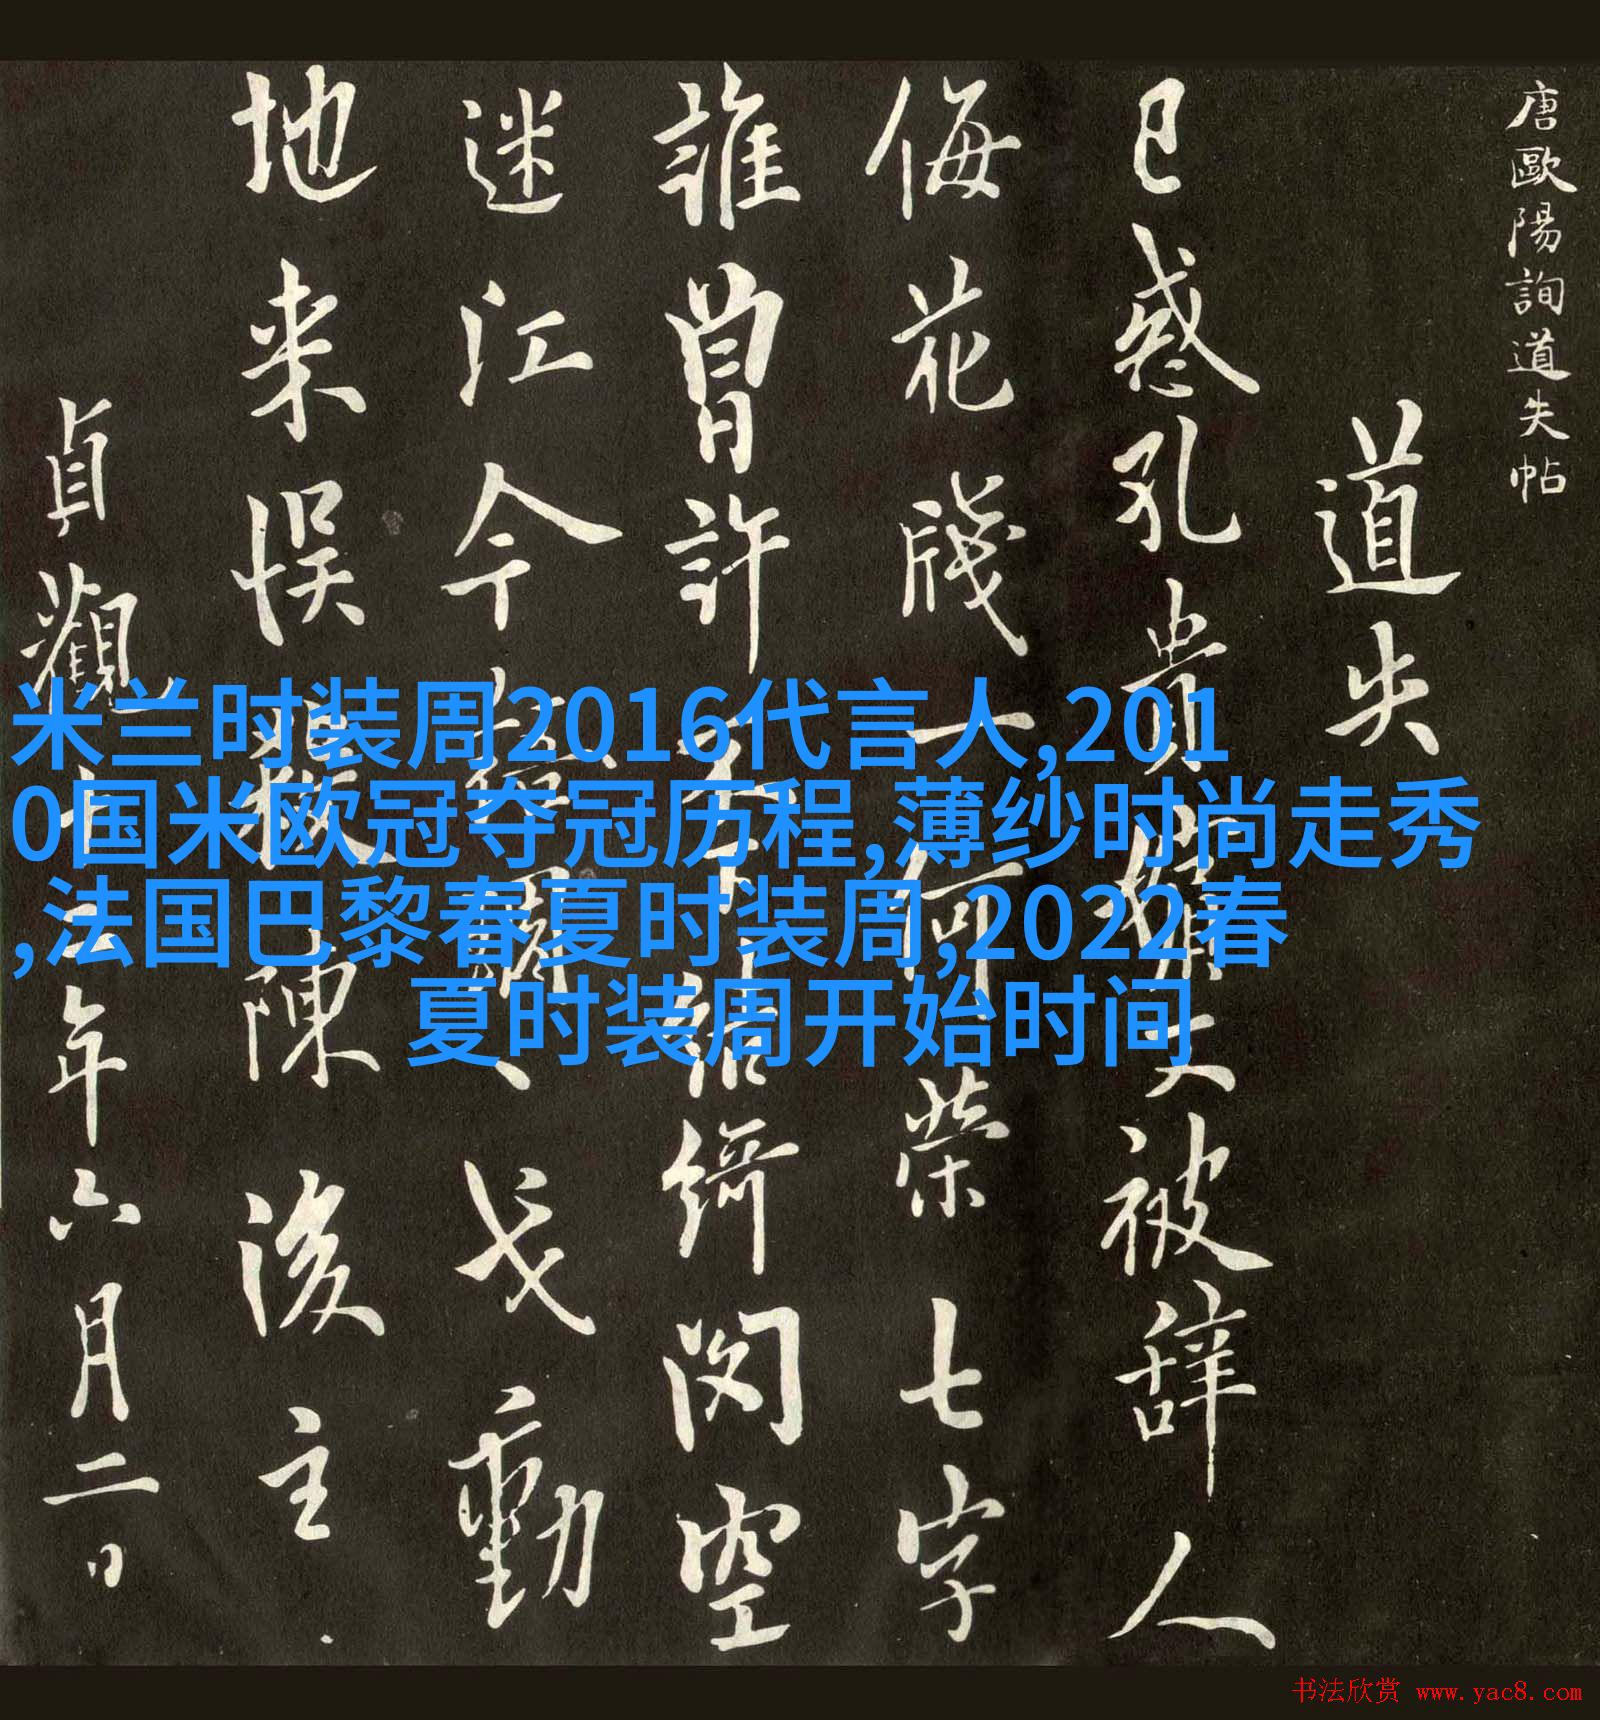 唐歐陽詢道失帖
道失
已惑孔貴嬪又被辭人
侮花牋一何榮七字
誰曾許不下結綺閣空
迷江令
戈動
地来误殺陳後主
貞觀十二年六月二日
米兰时装周2016代言人,201
0国米欧冠夺冠历程,薄纱时尚走秀
,法国巴黎春夏时装周,2022春
夏时装周开始时间
书法欣赏 www.yac8.com